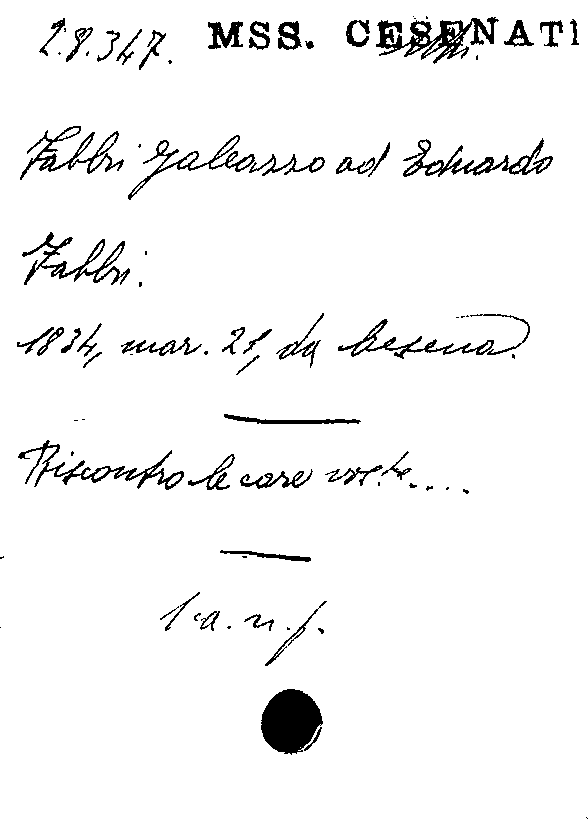 28.347. MSS. CESENATI
Fabbri Galeazzo ad Eduardo
Fabbri.
1834, mar. 21, da Cesena.
Riscontro le care vostre....
l. a. n. f.